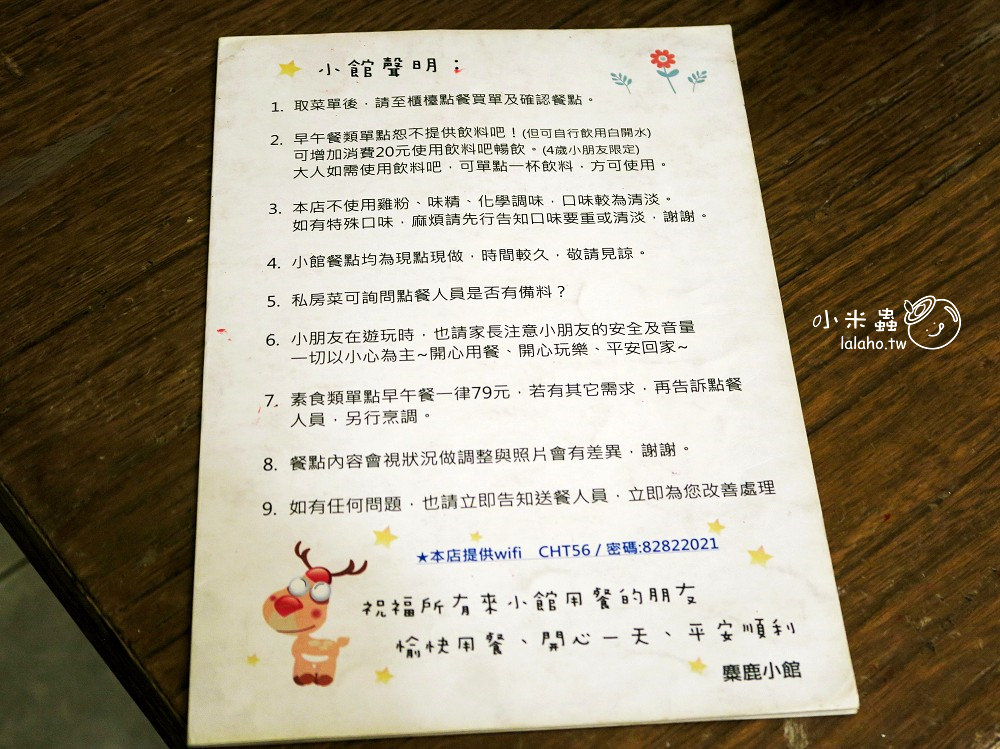 小館聲明：
1. 取菜單後，請至櫃檯點餐買單及確認餐點。
2. 早午餐類單點恕不提供飲料吧！(但可自行飲用白開水)
可增加消費20元使用飲料吧暢飲。(4歲小朋友限定)
大人如需使用飲料吧，可單點一杯飲料，方可使用。
3. 本店不使用雞粉、味精、化學調味，口味較為清淡。
如有特殊口味，麻煩請先行告知口味要重或清淡，謝謝。
4. 小館餐點均為現點現做，時間較久，敬請見諒。
5. 私房菜可詢問點餐人員是否有備料？
6. 小朋友在遊玩時，也請家長注意小朋友的安全及音量
一切以小心為主~開心用餐、開心玩樂、平安回家~
7. 素食類單點早午餐一律79元，若有其它需求，再告訴點餐
人員，另行烹調。
8. 餐點內容會視狀況做調整與照片會有差異，謝謝。
9. 如有任何問題，也請立即告知送餐人員，立即為您改善處理
★本店提供wifi CHT56 / 密碼:82822021
祝福所有來小館用餐的朋友
愉快用餐、開心一天、平安順利
麋鹿小館
小米蟲
lalaho.tw